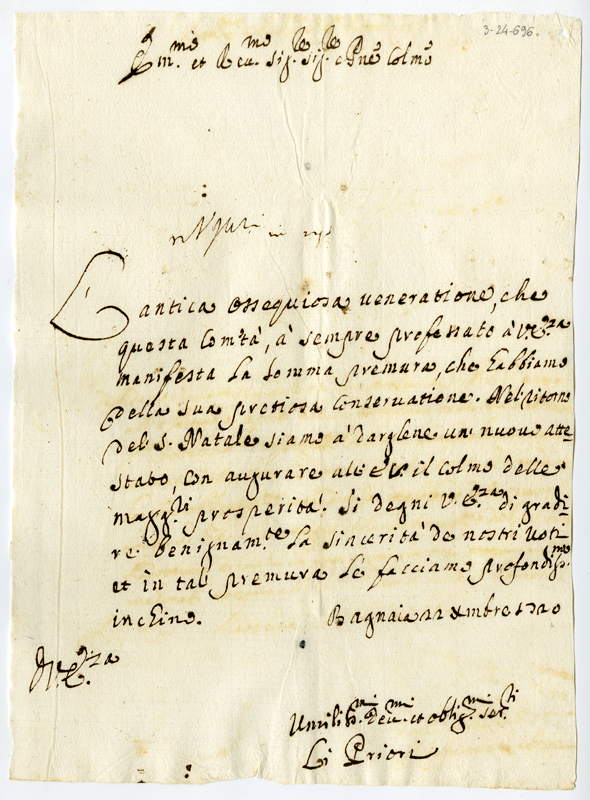 3-24-696.
Em.mo et Reu.mo Sig.re Sig.re e Pne Colmo
L'antica ossequiosa ueneratione, che
questa Com.tà, à sempre professato à V. E.za
manifesta la somma premura, che habbiamo
della sua pretiosa Conseruatione. Nel ritorno
del S. Natale siamo à darglene un nuouo atte=
stato, con augurare all' E.S. il Colmo delle
magg.ri prosperità. Si degni V. E.za di gradi=
re benignam.te la sincerità de nostri uoti
et in tal premura Le facciamo profondiss.mo
inchino.
Bagnaia 22 Xmbre 1720
Di V. E.za
Umiliss.mi deu.mi et oblig.mi ser.ri
Li Priori